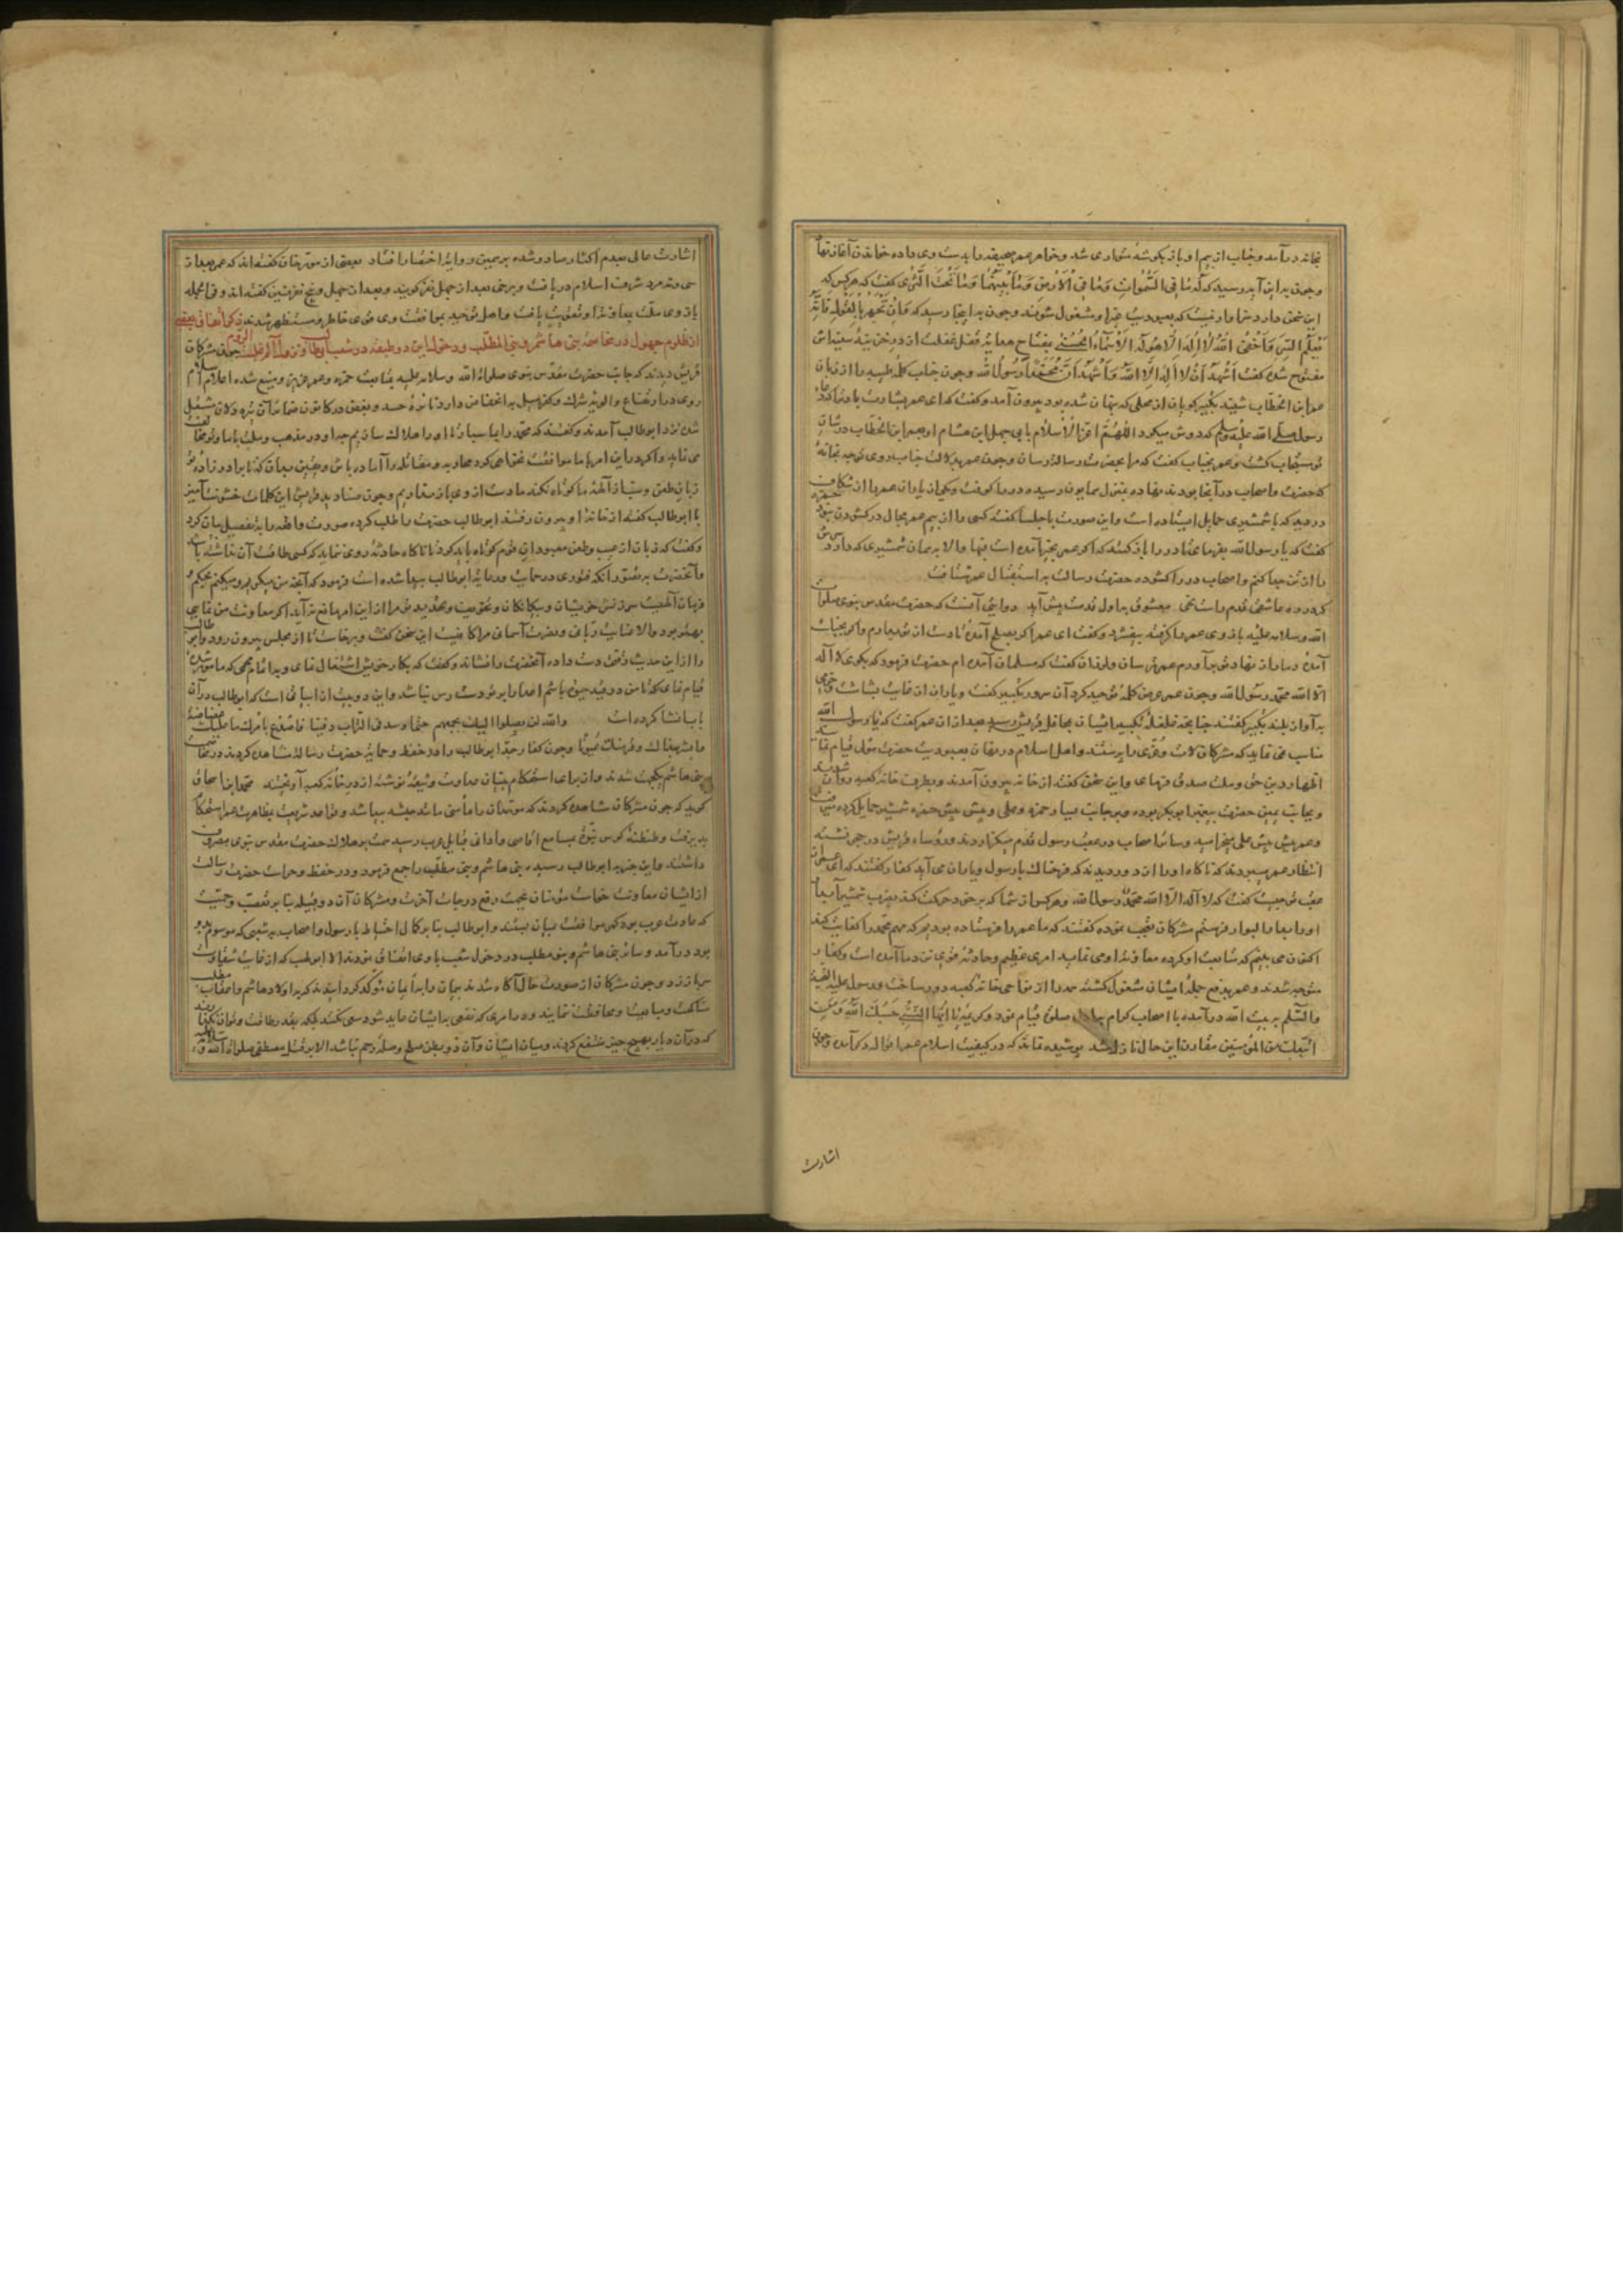 بخانه درآمد و خباب از بیم او باز بگوشه متواری شد و خواهر عمر صحیفه را بدست وی داده خواندن آغاز نهاد
و چون به این آیه رسید که لَهُ مَا فِی السَّمٰوَاتِ وَمَا فِی الْاَرْضِ وَمَا بَیْنَهُمَا وَمَا تَحْتَ الثَّرٰی گفت که هر کس که
این سخن دارد سزاوار نیست که بعبودیت غیر او مشغول شوند و چون به اینجا رسید که وَاِنْ تَجْهَرْ بِالْقَوْلِ فَاِنَّهُ
یَعْلَمُ السِّرَّ وَاَخْفٰی اَللهُ لَا اِلٰهَ اِلَّا هُوَ لَهُ الْاَسْمَاءُ الْحُسْنٰی بمفتاح هدایت قفل غفلت از درج سینه اش
مفتوح شده گفت اَشْهَدُ اَنْ لَا اِلٰهَ اِلَّا اللهُ وَاَشْهَدُ اَنَّ مُحَمَّداً رَسُولُ الله و چون خباب کلمه طیبه را از زبان
عمر ابن الخطاب شنید تکبیر گویان از محلی که پنهان شده بود بیرون آمد و گفت که ای عمر بشارت باد ترا که دعاء
رسول صلی الله علیه وسلم که دوش میکرد اللهُمَّ اَعِزَّ الْاِسْلَامَ بابی جهل ابن هشام او بعمر ابن الخطاب در شان
تو مستجاب گشت و عمر بخباب گفت که مرا بحضرت رسالت رسان و چون عمر بدلالت خباب روی توجه بخانه
که حضرت و اصحاب در آنجا بودند نهاده بمنزل همایون رسیده در را کوفت و یکی از یاران عمر را از شکاف
در دید که با شمشیری حمایل ایستاده است و این صورت با جلسا گفته کسی را از بیم عمر مجال در گشودن نبود حمزه
گفت که یا رسول الله بفرمای تا در را باز کنند که اگر عمر بخیر آمده است فبها و الا به همان شمشیری که دارد سرش
را از تن جدا کنم و اصحاب در را گشوده حضرت رسالت به استقبال عمر شتافت
گر در ره عاشقی قدم راست نهی معشوق به اول قدمت پیش آید روایتی آنست که حضرت مقدس نبوی صلوات
الله وسلامه علیه بازوی عمر را گرفته بیفشرد و گفت ای عمر اگر بصلح آمده تا دست از تو بدارم و اگر بجنگ
آمده دمار از نهاد تو برآورم عمر ترسان و لرزان گفت که مسلمان آمده ام حضرت فرمود که بگوی لا اله
الا الله محمد رسول الله و چون عمر عرض کلمه توحید کرد آن سرور تکبیر گفت و یاران از غایت بشاشت و خرمی
به آواز بلند تکبیر گفتند چنانچه غلغله تکبیر ایشان بمحافل قریش رسید بعد از آن عمر گفت که یا رسول الله
مناسب می نماید که مشرکان لات و عزی را پرستند و اهل اسلام در نهان بعبودیت حضرت
اظهار دین حق و ملت صدق فرمای و این سخن گفت از خانه بیرون آمدند و بطرف خانه کعبه روان شدند
و بجانب یمین حضرت پیغمبر ابوبکر بوده و بر جانب یسار حمزه و علی پیش پیش حمزه شمشیر حمایل کرده
و عمر پیش پیش علی میخرامید و سائر اصحاب در عقب رسول قدم میگذاردند و رؤساء قریش در حجر نشسته
انتظار عمر میبردند که ناگاه او را از دور دیدند که فرحناک با رسول و یاران می آید کفار گفتند که ای عمر
عقب تو چیست گفت که لا اله الا الله محمد رسول الله و هر کس از شما که بر خود حرکت کند بضرب شمشیر
او را بدار البوار فرستم مشرکان تعجب نموده گفتند که ما عمر را فرستاده بودیم که مهم محمد را کفایت کند
اکنون می بینم که متابعت او کرده معاونت او می نماید امری عظیم و حادثه قوی نزد ما آمده است و کفار
متوجه شدند و عمر بدفع جمله ایشان مشغول گشته همه را از نواحی خانه کعبه دور ساخت و رسول علیه التحیة
والسلم به بیت الله درآمده با اصحاب کرام به صلوة قیام نمود و کریمه یَا اَیُّهَا النَّبِیُّ حَسْبُکَ اللهُ وَمَنِ
اتَّبَعَکَ مِنَ الْمُؤْمِنِینَ مقارن این حال نازل شد پوشیده نماند که در کیفیت اسلام عمر اقوال دیگر آمده و چون
اشارت
اشارت عالی بعدم اکثار صادر شده بر همین روایة اختصار افتاد بعضی از مورخان گفته اند که عمر بعد از
سی و نه مرد شرف اسلام دریافت و برخی بعد از چهل نفر گویند و بعد از چهل و پنج نفر نیز گفته اند و فی الجمله
بازوی ملت بمعاونت او تقویت یافت و اهل توحید بموافقت وی قوی خاطر و مستظهر شدند ذکر اتفاق
ان ظلوم جهول در مخاصمه بنی هاشم و بنی المطلب و دخول این دو طبقه در شعب ابوطالب چون مشرکان
قریش دیدند که جانب حضرت مقدس نبوی صلوات الله وسلامه علیه بمتابعت حمزه و عمر عزیز و منیع شده اعلام اسلام
روی در ارتفاع و الویه شرک و کفر میل به انخفاض دارد نائره حسد و بغض در کانون ضمائر آن تیره دلان مشتعل
شده نزد ابوطالب آمدند و گفتند که محمد را بما سپار تا او را هلاک سازیم چه او در مذهب و ملت با ما و تو مخالفت
می نماید و اگر در این امر با ما موافقت نخواهی کرد محاربه و مقاتله را آماده باش
زبان طعن و سب از آلهه ما کوتاه نکند ما دست از وی باز نداریم و چون صنادید قریش این کلمات خشونت آمیز
با ابوطالب گفته از خانه او بیرون رفتند ابوطالب حضرت را طلب کرده صورت واقعه را بتفصیل بیان کرد
و گفت که زبان از عیب و طعن معبودان قوم کوتاه باید کرد تا ناگاه حادثه روی ننماید که کسی طاقت آن نداشته باشد
و آنحضرت به تصور آنکه فتوری در حمایت و رعایة ابوطالب پیدا شده است فرمود که آنچه من میگویم و میکنم بحکم
فرمان الهیست سرزنش خویشان و بیگانگان و تخویف و تهدید مرا از این امر مانع نمی آید اگر معاونت من نمایی
بهتر بود والا عنایت ربانی و نصرت آسمانی مرا کافیست این سخن گفت و برخاست تا از مجلس بیرون رود و ابوطالب
را از این حدیث رقتی دست داده آنحضرت را نشاند و گفت که بکار خویش اشتغال نمای و به اتمام مهمی که مامور شده
قیام نمای که تا من در قید حیوة باشم اعدا را بر تو دست رس نباشد و این دو بیت از ابیاتی است که ابوطالب در آن
باب انشا کرده است والله لن یصلوا الیک بجمعهم حتی اوسد فی التراب دفینا فاصدع بامرک ما علیک غضاضة
و ابشر بذاک و قر منک عیونا و چون کفار جد ابوطالب را در حفظ و حمایة حضرت رسالة مشاهده کردند در مخالفت
بنی هاشم یکجهت شدند و از برای استحکام بنیان عداوت وثیقه نوشته از در خانه کعبه آویختند محمد ابن اسحاق
گوید که چون مشرکان مشاهده کردند که موحدان را مأمنی مانند حبشه پیدا شد و قواعد شریعت بمظاهرت عمر استحکام
پذیرفت و طنطنه کوس نبوة بمسامع اقاصی و ادانی قبایل عرب رسید همت بر هلاک حضرت مقدس نبوی مصروف
داشتند و این خبر به ابوطالب رسیده بنی هاشم و بنی مطلب را جمع فرمود و در حفظ و حراست حضرت رسالت
از ایشان معاونت خواست مؤمنان بجهت رفع درجات آخرت و مشرکان آن دو قبیله بنا بر تعصب و حمیت
که عادت عرب بود کمر موافقت بمیان بستند و ابوطالب بنا بر کمال احتیاط با رسول و اصحاب به شعبی که موسوم به او
بود درآمد و سائر بنی هاشم و بنی مطلب در دخول شعب با وی اتفاق نمودند الا ابولهب که از غایت شقاوت
سر باز زد و چون مشرکان از صورت حال آگاه شدند پیمان را به ایمان مؤکد گردانیدند که به اولاد هاشم و مطلب
مناکحت و مبایعت و مخالطت ننمایند و در امری که نفعی به ایشان عاید شود سعی نکنند بلکه بقدر طاقت و توان نگذارند
که در آن دیار بهیچ چیز منتفع گردند و میان ایشان و آن دو بطن صلح و صله رحم نباشد الا بر قتل مصطفی صلوات الله و سلامه